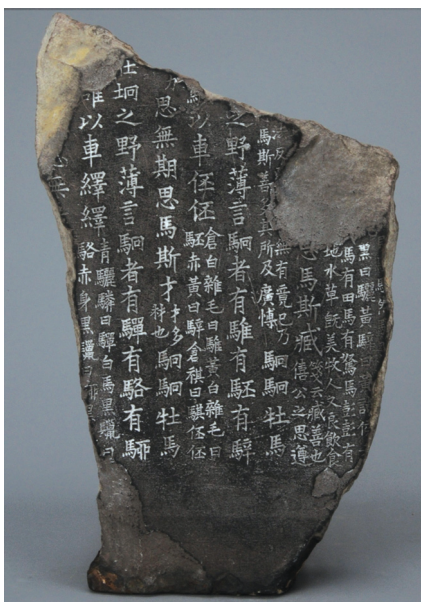 黑曰驪黃騂曰黃諸
馬有田馬有駑馬彭彭有
地水草既美牧人又良飲食
思馬斯臧 箋云臧善也
僖公之思遵
無有竟已乃
馬斯善多其所及廣博 駉駉牡馬
之野薄言駉者有騅有駓有騂
以車伾伾 倉白雜毛曰騅黃白雜毛曰
駓赤黃曰騂倉祺曰騏伾伾
思無期思馬斯才 才多
材也 駉駉牡馬
在坰之野薄言駉者有驒有駱有駵
雒以車繹繹 青驪驎曰驒白馬黑鬣曰
駱赤身黑鬣曰駵黑